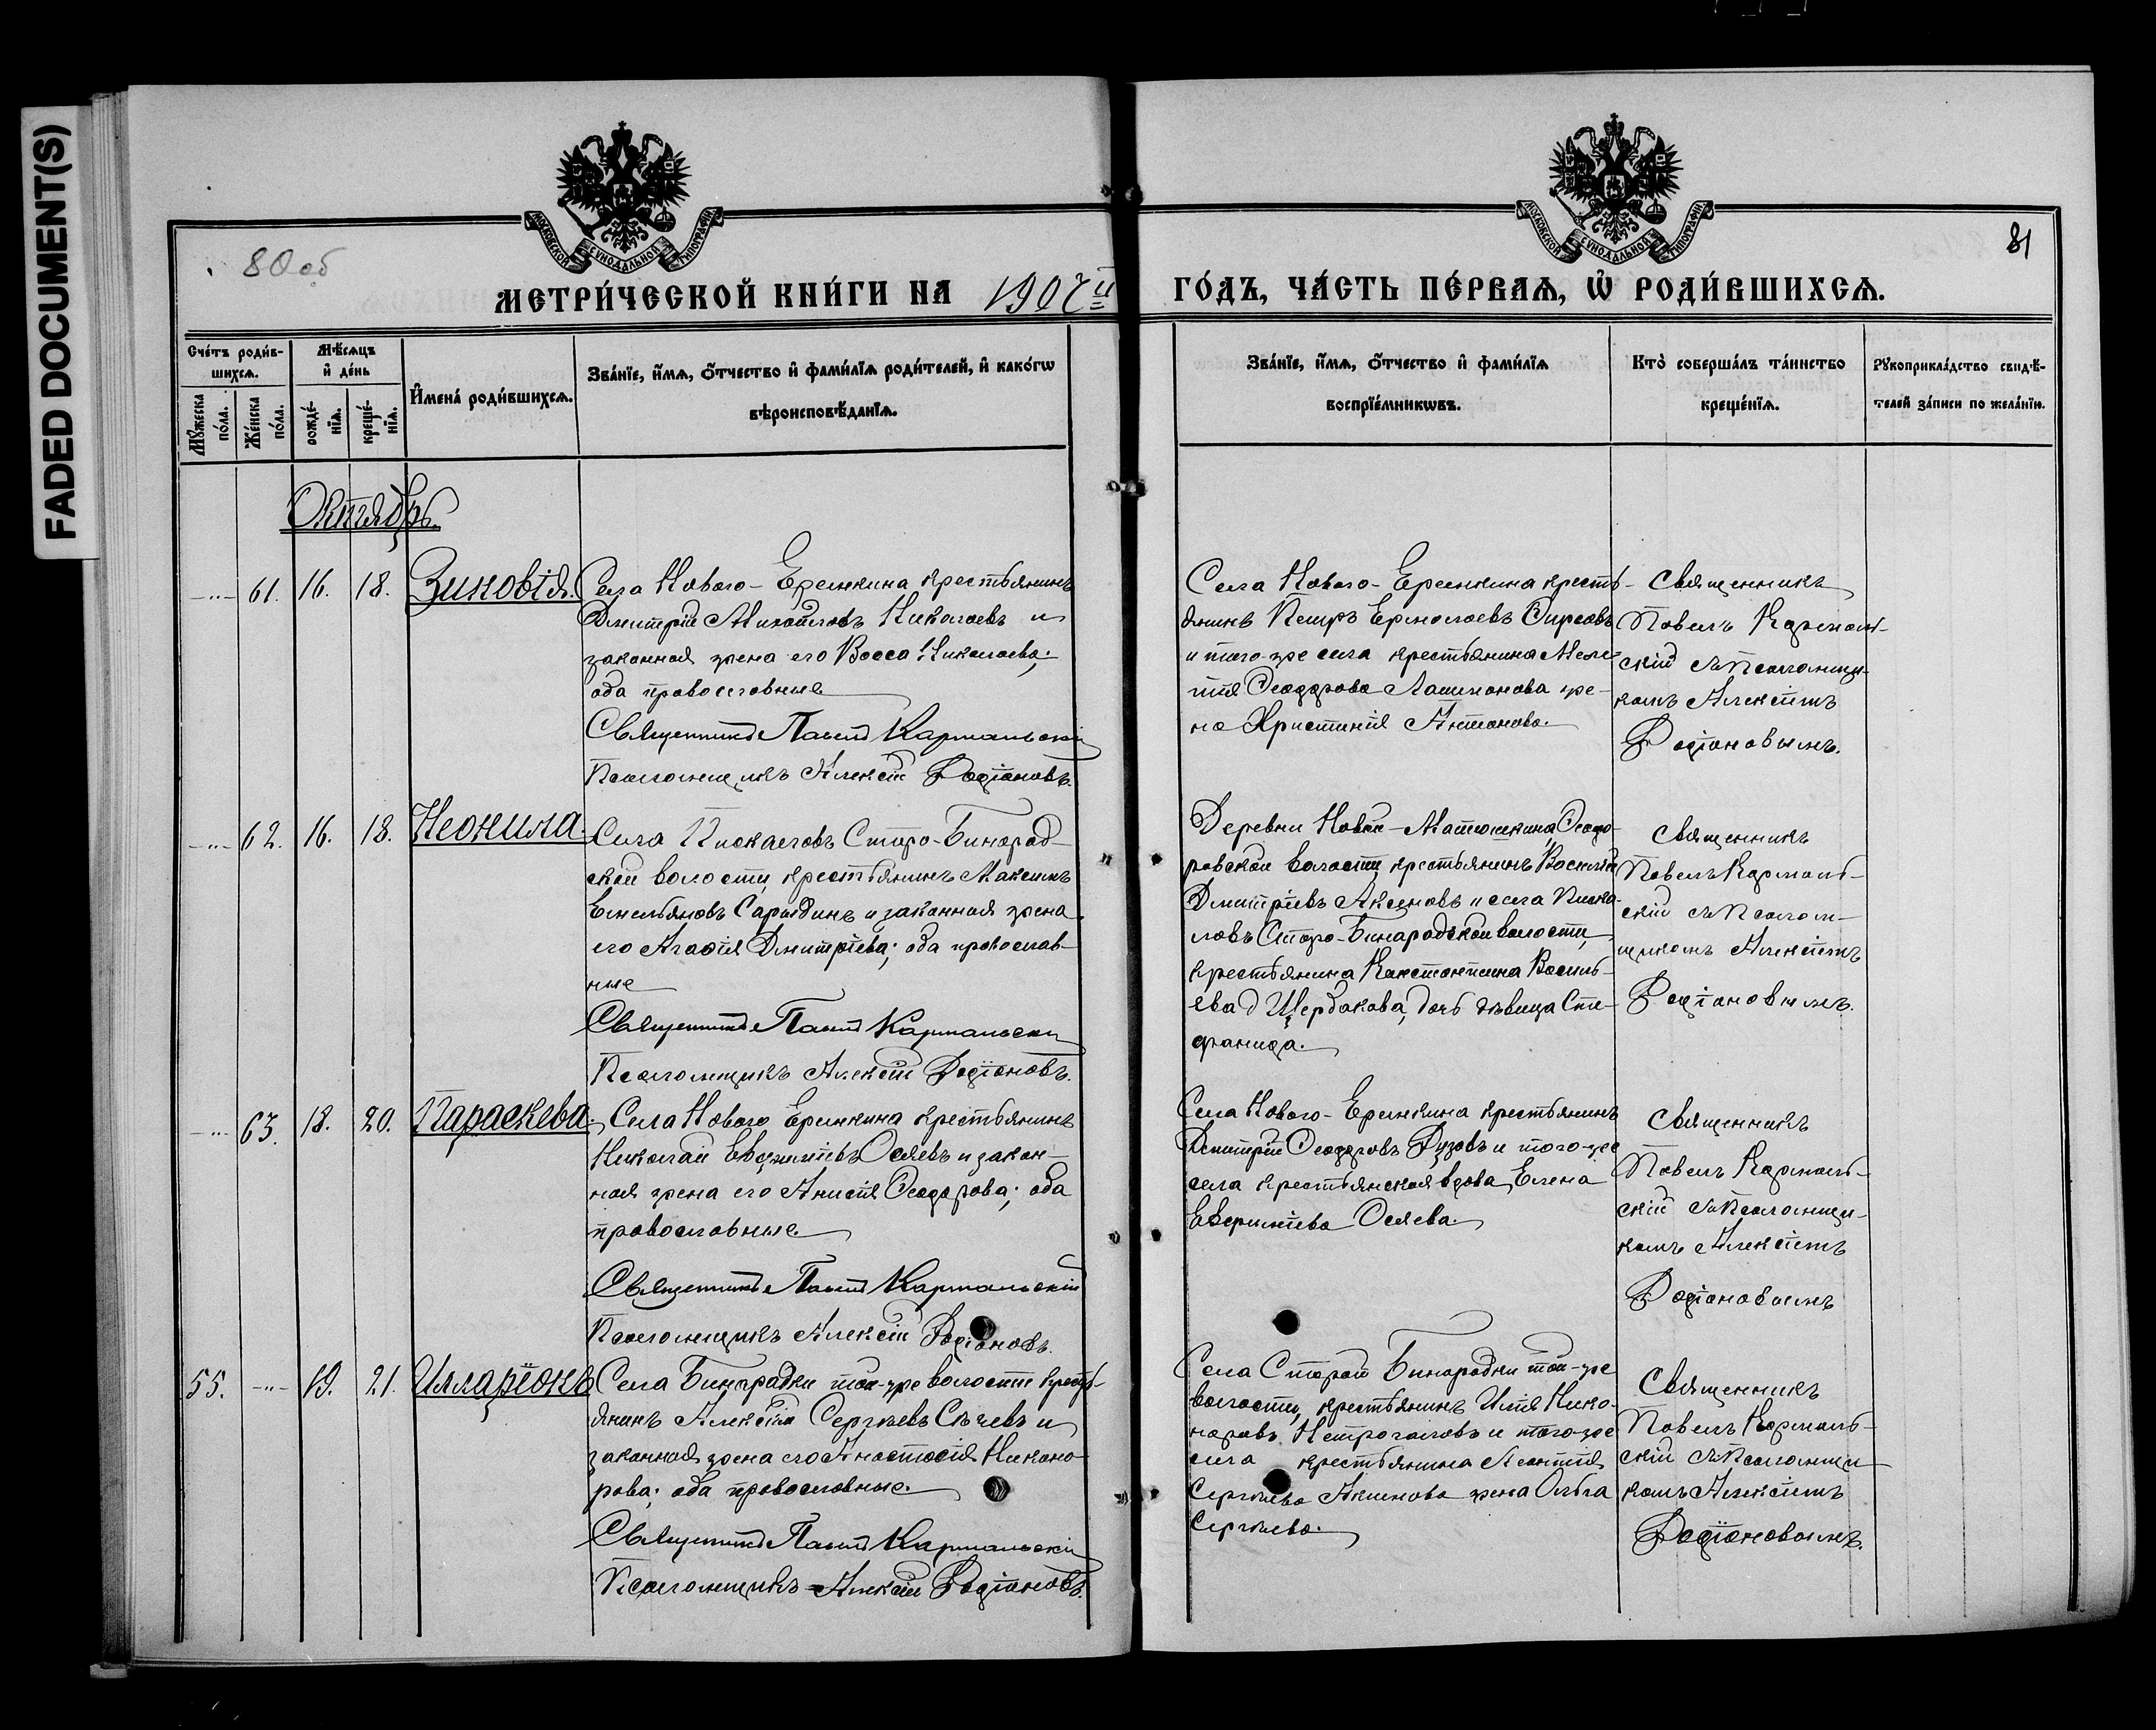 FADED DOCUMENT(S)
80 об
81
МОСКОВСКОЙ СУНОДАЛЬНОЙ ТИПОГРАФІИ
МОСКОВСКОЙ СУНОДАЛЬНОЙ ТИПОГРАФІИ
МЕТРИ́ЧЕСКОЙ КНИ́ГИ НА 1907 й
ГО́ДЪ, ЧА́СТЬ ПЕ́РВАѦ, Ѡ҆ РОДИ́ВШИХСѦ.
Сче́тъ роди́в-
шихсѧ.
Мꙋ́жеска по́ла.
Же́нска по́ла.
Мѣ́сѧцъ
и҆ де́нь
рожде́-
нїѧ.
креще́-
нїѧ.
И҆мена̀ роди́вшихсѧ.
Зва́нїе, и҆́мѧ, ѻ҆́тчество и҆ фами́лїѧ роди́телей, и҆ како́гѡ
вѣроисповѣ́данїѧ.
Зва́нїе, и҆́мѧ, ѻ҆́тчество и҆ фами́лїѧ
воспрїе́мникѡвъ.
Кто̀ соверша́лъ та́инство
креще́нїѧ.
Рꙋкоприкла́дство свидѣ́-
телей за́писи по жела́нїю.
Октябрь.
-"- 61. 16. 18. Зиновія.
Села Нового-Еремкина крестьянинъ
Дмитрій Михайловъ Николаевъ и
законная жена его Васса Николаева;
оба православные
Священникъ Павелъ Кармальскій
Псаломщикъ Алексій Родіоновъ.
Села Нового-Еремкина кресть-
янинъ Петръ Ермолаевъ
и того-же села крестьянина Меле-
тія Ѳеодорова жe-
на Христинія Антонова.
Священникъ
Павелъ Кармаль-
скій съ Псаломщи-
комъ Алексіемъ
Родіоновымъ.
-"- 62. 16. 18. Неонила
Села Пискаловъ Старо-Бинарад-
ской волости, крестьянинъ Максимъ
Емельяновъ и законная жена
его Агаѳія Дмитріева; оба православ-
ные
Священникъ Павелъ Кармальскій
Псаломщикъ Алексій Родіоновъ.
Деревни Новой-Матюшкина, Ѳеодо-
ровской волости крестьянинъ Василій
Дмитріевъ Аксеновъ и села Писка-
ловъ Старо-Бинарадской волости,
крестьянина Константина Василь-
ева Щербакова, дочь дѣвица Сте-
фанида.
Священникъ
Павелъ Кармаль-
скій съ Псалом-
щикомъ Алексіемъ
Родіоновымъ.
-"- 63. 18. 20. Параскева.
Села Нового Еремкина крестьянинъ
Николай Евфиміевъ Осяевъ и закон-
ная жена его Анисія Ѳеодорова; оба
православные.
Священникъ Павелъ Кармальскій
Псаломщикъ Алексій Родіоновъ.
Села Нового-Еремкина крестьянинъ
Дмитрій Ѳеодоровъ и того-же
села крестьянская вдова, Елена
Осяева.
Священникъ
Павелъ Кармаль-
скій съ Псаломщи-
комъ Алексіемъ
Родіоновымъ
55. -"- 19. 21. Илларіонъ
Села Бинарадки той-же волости кресть-
янинъ Алексій Сергѣевъ и
законная жена его Анастасія Никано-
рова; оба православные.
Священникъ Павелъ Кармальскій
Псаломщикъ Алексій Родіоновъ.
Села Старой Бинарадки той-же
волости, крестьянинъ Илія Ника-
норовъ и того-же
села крестьянина Леонтія
Сергѣева Акимова жена Ольга
Сергѣева.
Священникъ
Павелъ Кармаль-
скій съ Псаломщи-
комъ Алексіемъ
Родіоновымъ.